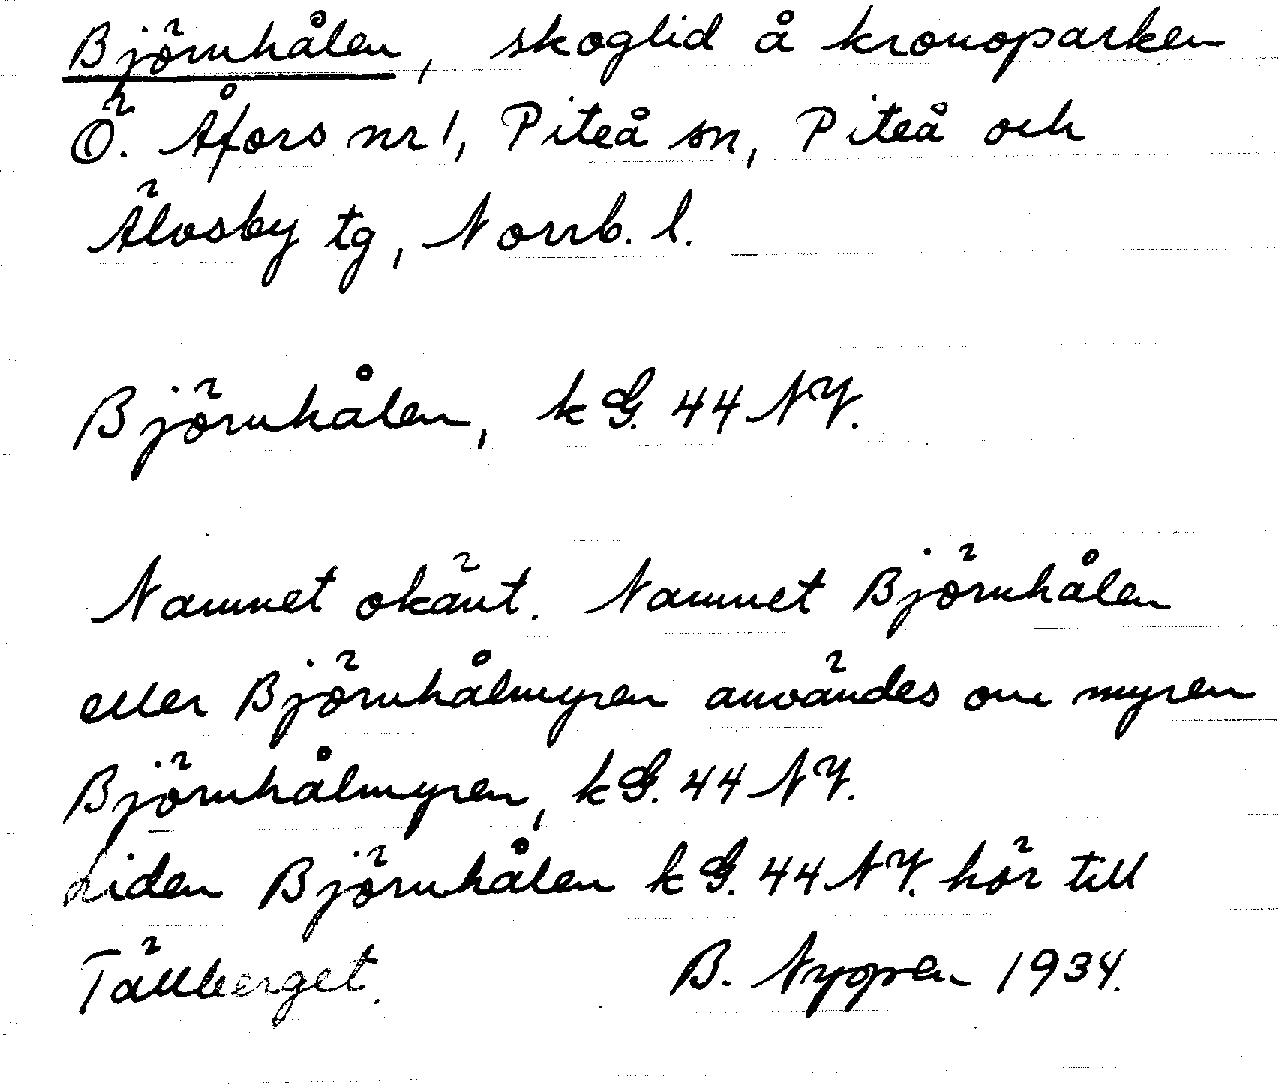 Björnhålen, skoglid å kronoparken
Ö. Åfors nr 1, Piteå sn, Piteå och
Älvsby tg, Norrb. l.
Björnhålen, k G. 44 NV.
Namnet okänt. Namnet Björnhålen
eller Björnhålmyren användes om myren
Björnhålmyren, k G. 44 NV.
Liden Björnhålen k G. 44 NV. hör till
Tällberget. B. Nygren 1934.